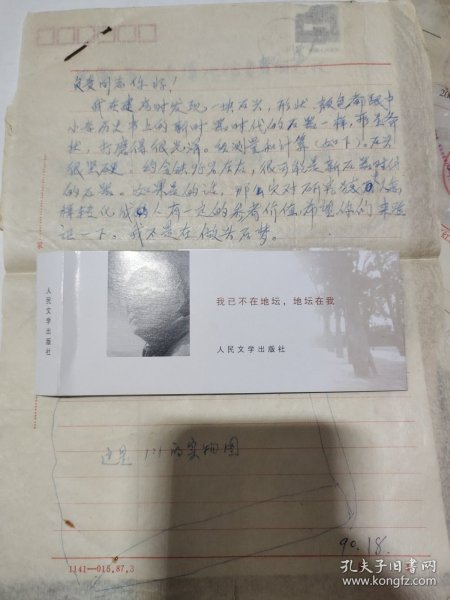 负责同志你好!
我在建房时发现一块石头,形状、颜色都跟中
小学历史书上的新时器时代的石器一样,带
状,打磨得很光滑。经测量和计算(如下),石头
很坚硬,约含铁 左右,很可能是新石器时代
的石器。如果是的话,那 对研究 怎
样挖化成 人有一定的参考价值,希望你们来验
证一下。我不是在做石头梦。
人民文学出版社
我已不在地坛,地坛在我
人民文学出版社
这是1:1的实物图
90.18.
1141—015.87.3
孔夫子旧书网
www.kongfz.com